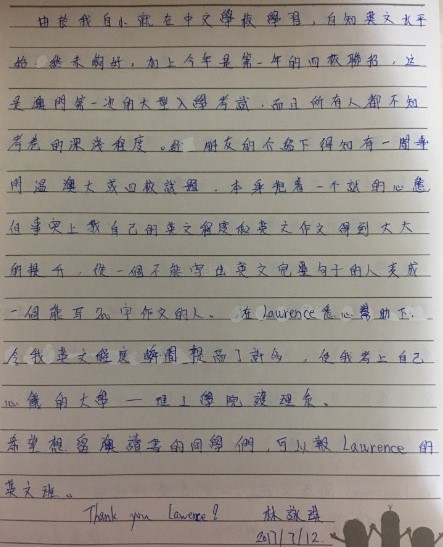 由於我自小就在中文學校學習，自知英文水平
始終未夠好，加上今年是第一年的四校聯招，這
是澳門第一次的大型入學考試，而且所有人都不知
考卷的深淺程度。經朋友的介紹下得知有一間專
門溫澳大或四校試題，本來抱着一个試的心態
但事實上我自己的英文程度做英文作文得到大大
的提升，從一個不能寫出英文完整句子的人变成
一個能写200字作文的人。在Lawrence悉心幫助下，
令我英文程度瞬間提高了許多，使我考上自己
心儀的大學——鏡湖學院護理系。
希望想留澳讀書的同學們，可以報Lawrence的
英文班。
Thank you Lawrence!
2017/7/12.